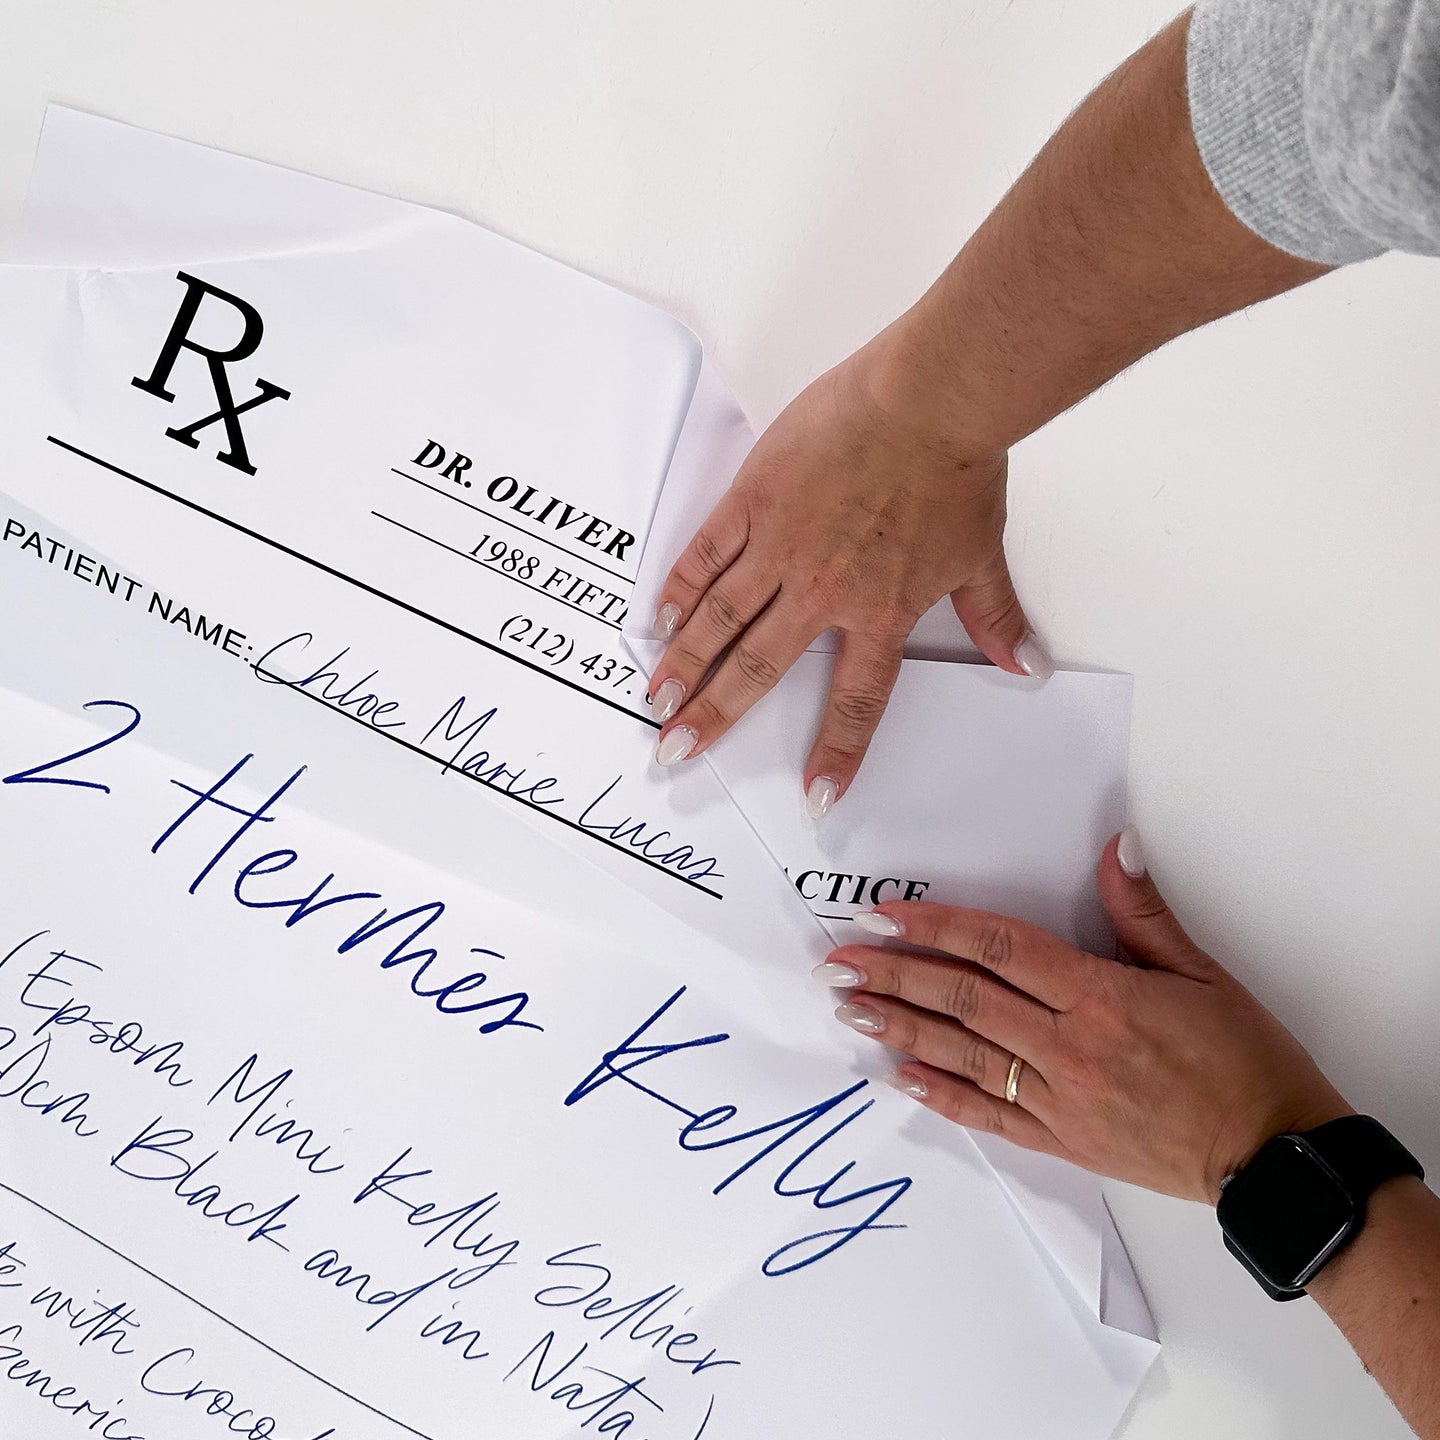 Rx
DR. OLIVER
1988 FIFTH
(212) 437.
PATIENT NAME: Chloe Marie Lucas
ACTICE
2 Hermés Kelly
(Epsom Mini Kelly Sellier
20cm Black and in Nata)
with Croco
Generic